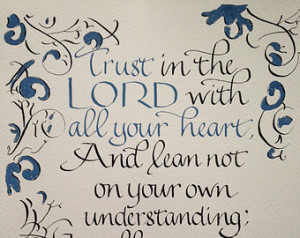 Trust in the
LORD with
all your heart,
And lean not
on your own
understanding;